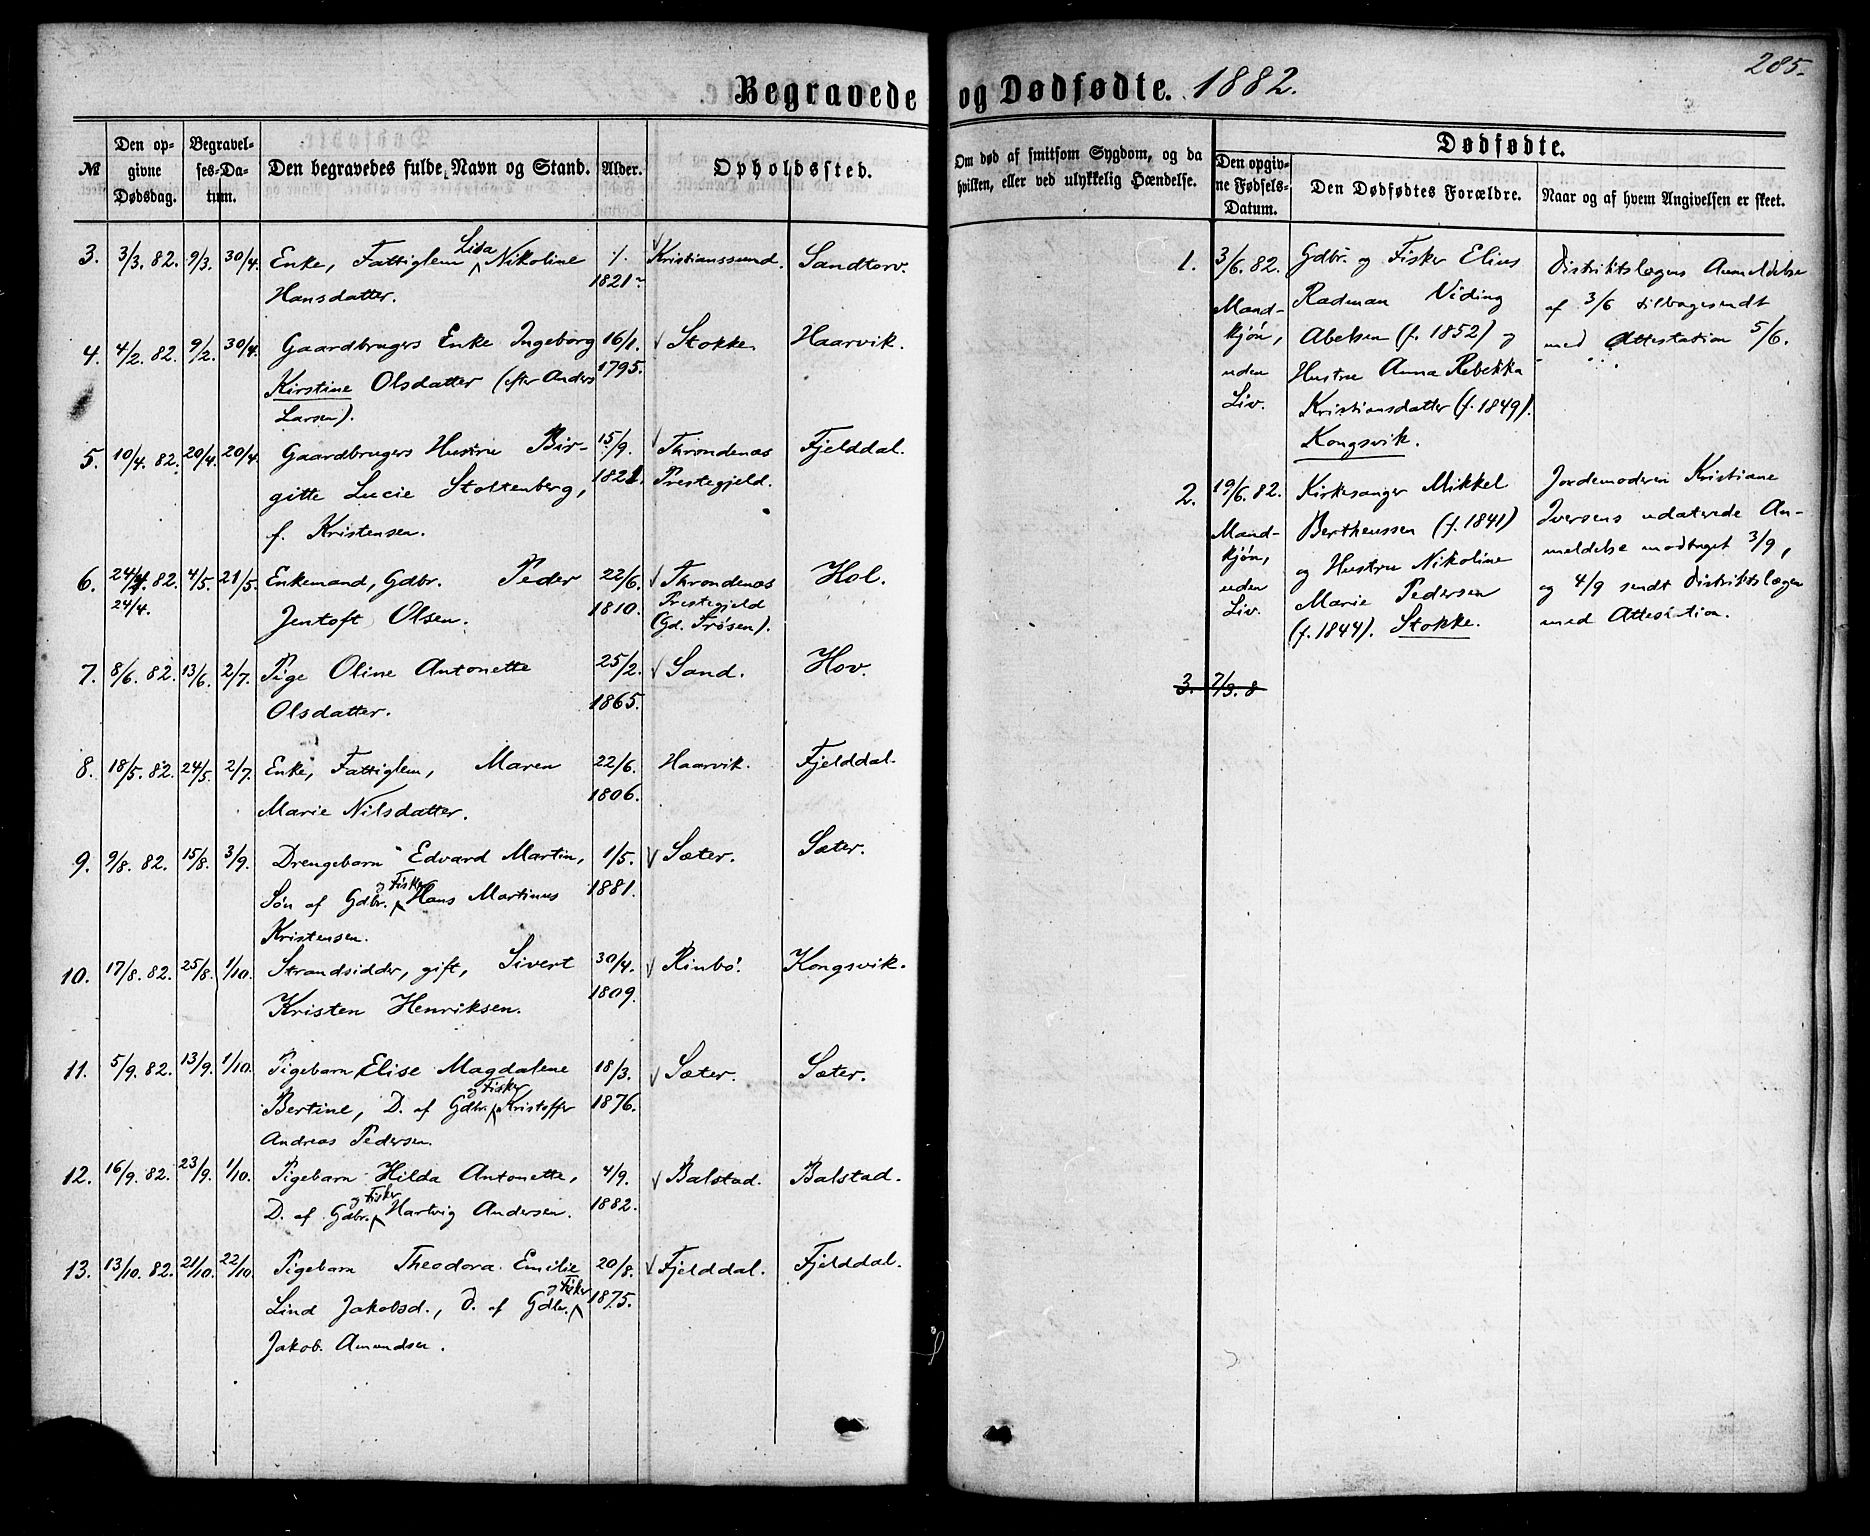 285.
Begravede og Dødfødte. 1882.
№
Den opgivne Dødsdag.
Begravelses-Datum.
Den begravedes fulde Navn og Stand.
Alder.
Opholdssted.
Om død af smitsom Sygdom, og da
hvilken, eller ved ulykkelig Hændelse.
Dødfødte.
Den opgivne Fødsels-Datum.
Den Dødfødtes Forældre.
Naar og af hvem Angivelsen er skeet.
3. 3/3. 82. 9/3. 30/4. Enke, Fattiglem Lisa Nikoline 1821 Kristianssund. Sandtorv.
Hansdatter.
4. 4/2. 82. 9/2. 30/4. Gaardbrugers Enke Ingeborg 16/1. 1795. Stokke. Haarvik.
Kirstine Olsdatter (efter Anders
Larsen).
5. 10/4. 82. 20/4. 20/4. Gaardbrugers Hustru Bir- 15/9. 1821. Throndenæs Fjelddal.
gitte Lucie Stoltenberg, Prestegjeld.
f. Kristensen.
6. 24/4. 82. 4/5. 21/5. Enkemand, Gdbr. Peder 22/6. 1810. Throndenæs Hol.
24/4. Jentoft Olsen. Prestegjeld
(Gd. Frøsen).
7. 8/6. 82. 13/6. 2/7. Pige Oline Antonette 25/2. 1865. Sand. Hov.
Olsdatter.
8. 18/5. 82. 24/5. 2/7. Enke, Fattiglem, Maren 22/6. 1806. Haarvik. Fjelddal.
Marie Nilsdatter.
9. 9/8. 82. 15/8. 3/9. Drengebarn Edvard Martin, 1/5. 1881. Sæter. Sæter.
Søn af Gdbr. og Fisker Hans Martinus
Kristensen.
10. 17/8. 82. 25/8. 1/10. Strandsidder, gift, Sivert 30/4. 1809. Rinbø. Kongsvik.
Kristen Henriksen.
11. 5/9. 82. 13/9. 1/10. Pigebarn Elise Magdalene 18/3. 1876. Sæter. Sæter.
Bertine, D. af Gdbr. og Fisker Kristoffer
Andreas Pedersen.
12. 16/9. 82. 23/9. 1/10. Pigebarn Hilda Antonette, 4/9. 1882. Balstad. Balstad.
D. af Gdbr. og Fisker Hartvig Andersen.
13. 13/10. 82. 21/10. 22/10. Pigebarn Theodora Emilie 20/8. 1875. Fjelddal. Fjelddal.
Lind Jakobsd., D. af Gdbr. og Fisker
Jakob Amundsen.
1. 3/6. 82. Gdbr. og Fisker Elius Distriktslægens Anmeldelse
Mand- Radman Viding af 3/6 tilbagesendt
kjøn, Abelsen (f. 1852) og med Attestation 5/6.
uden Hustru Anna Rebekka
Liv. Kristiansdatter (f. 1849).
Kongsvik.
2. 19/6. 82. Kirkesanger Mikkel Jordemoderen Kristiane
Mand- Bertheussen (f. 1841) Iversens udaterede An-
kjøn, og Hustru Nikoline meldelse modtaget 3/9,
uden Marie Pedersen og 4/9 sendt Distriktslægen
Liv. (f. 1844). Stokke. med Attestation.
3. 7/3. 8